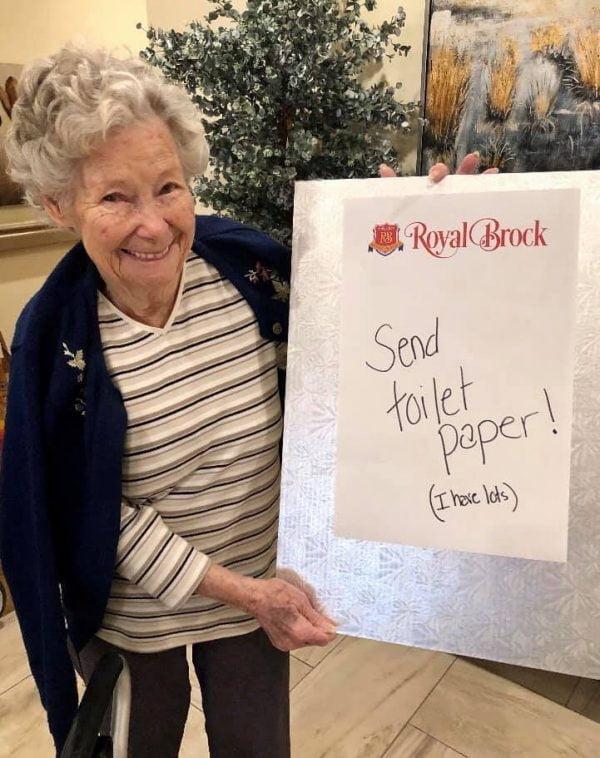 RB
Royal Brock
Send
toilet
paper!
(I have lots)